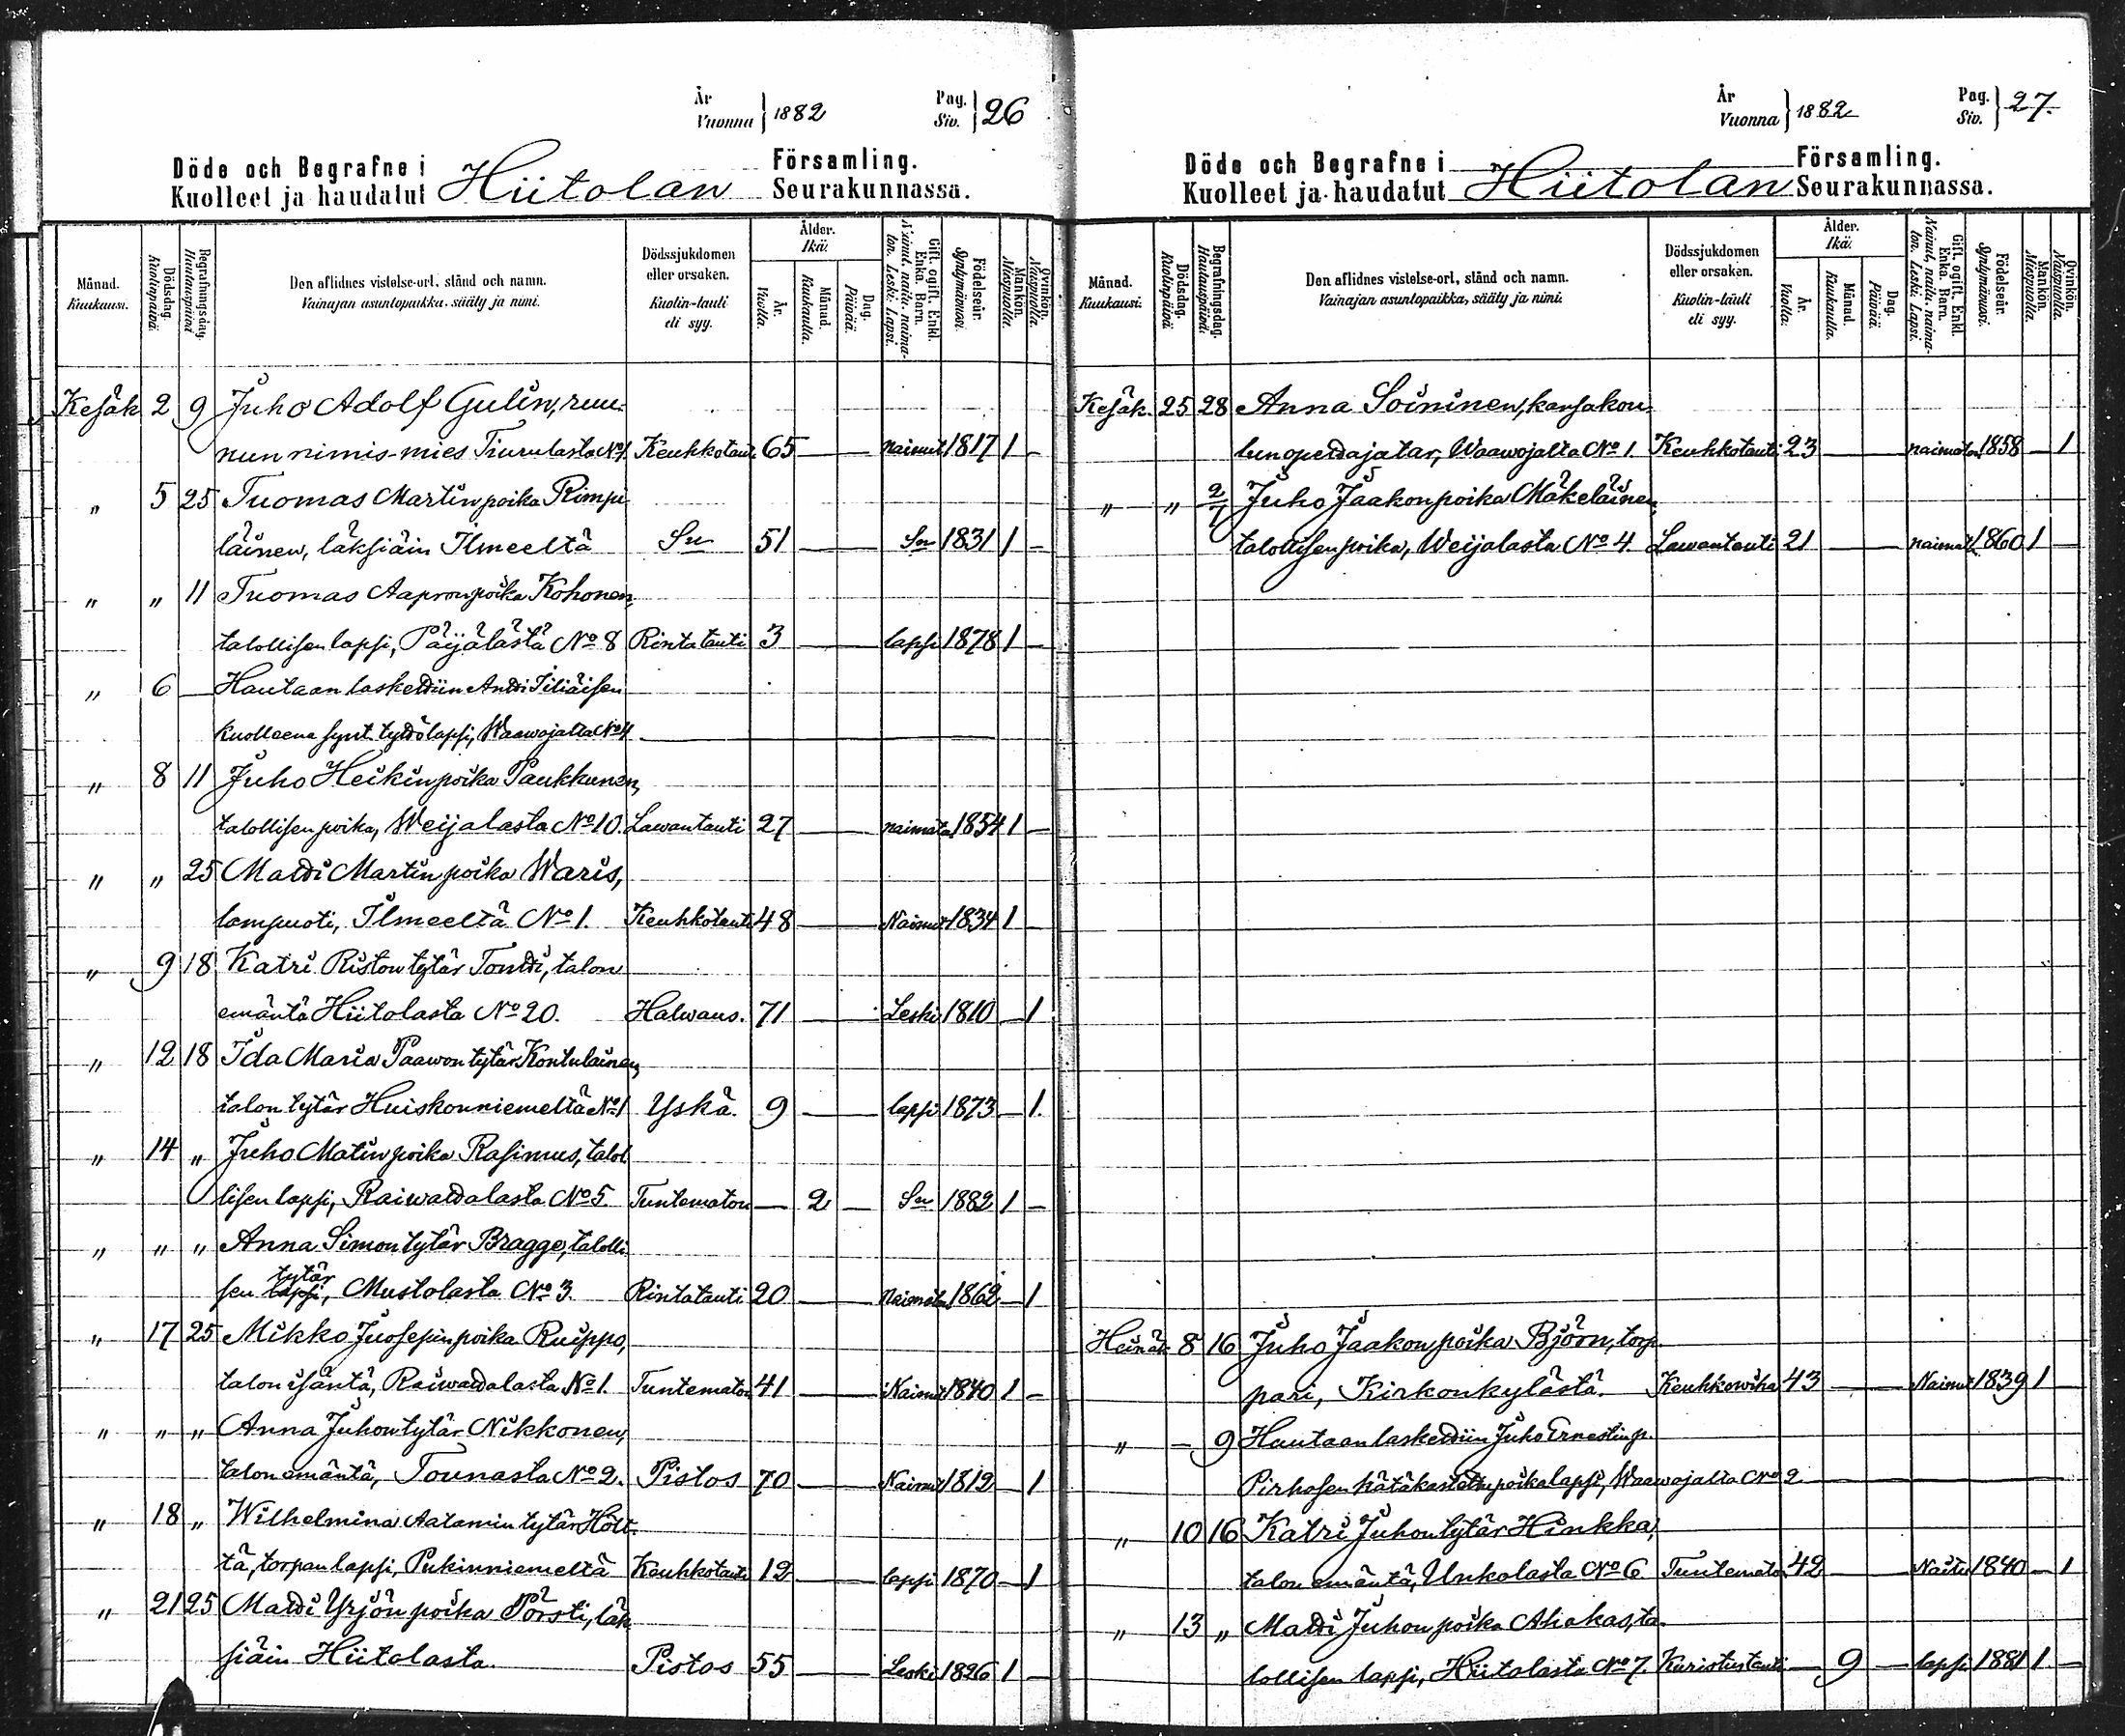 År
Vuonna } 1882
Pag.
Siv. } 26
Döde och Begrafne i Hiitolan Församling.
Kuolleet ja haudatut Seurakunnassa.
Månad. Kuukausi.
Dödsdag. Kuolinpäivä.
Begrafningsdag. Hautauspäivä
Den aflidnes vistelse-ort, stånd och namn.
Vainajan asuntopaikka, sääty ja nimi.
Dödssjukdomen eller orsaken.
Kuolin-tauti eli syy.
Ålder. Ikä.
År. Vuotta.
Månad. Kuukautta.
Dag. Päivää.
Gift, ogift, Enkl. Enka. Barn. Nainut, naitu, naimaton. Leski. Lapsi.
Födelseår. Syntymävuosi.
Mankön. Miespuolta.
Qvinkön. Naispuolta.
Kesäk. 2 9 Juho Adolf Gulin, ruu-
nun nimis-mies Tiurulasta No 1. Keuhkotauti 65 — nainut 1817 1 —
" 5 25 Tuomas Martinpoika Rimpi
läinen, läksiäin Ilmeeltä Sn 51 — Sn 1831 1 —
" " 11 Tuomas Aapronpoika Kohonen,
talollisen lapsi, Päijälästä No 8 Rintatauti 3 — lapsi 1878 1 —
" 6 — Hautaan laskettiin Antti Iiliäisen
kuolleena synt. tyttölapsi, Waawojalta No 4 —
" 8 11 Juho Heikinpoika Paukkunen,
talollisen poika, Weijalasta No 10. Lawantauti 27 — naimato 1854 1 —
" " 25 Matti Martinpoika Waris,
lampuoti, Ilmeeltä No 1. Keuhkotauti 48 — Nainut 1834 1 —
" 9 18 Katri Ristontytär Tontti, talon
emäntä Hiitolasta No 20. Halwaus. 71 — Leski 1810 — 1
" 12 18 Ida Maria Paawontytär Kontulainen,
talon tytär Huiskonniemeltä No 1 Yskä. 9 — lapsi 1873 — 1.
" 14 " Juho Matinpoika Rasimus, talol
lisen lapsi, Raiwattalasta No 5. Tuntematon — 2 — Sn 1882 1 —
" " " Anna Simontytär Bragge, talolli
sen lapsi tytär, Mustolasta No 3. Rintatauti 20 — Naimato 1862 — 1
" 17 25 Mikko Juosepinpoika Ruippo,
talon isäntä, Raiwattalasta No 1. Tuntematon 41 — Nainut 1840 1 —
" " " Anna Juhontytär Nikkonen,
talon emäntä, Tounasta No 2. Pistos 70 — Nainut 1812 — 1
" 18 " Wilhelmina Aatamintytär Hölt-
tä, torpan lapsi, Pukinniemeltä Keuhkotauti 12 — lapsi 1870 — 1
" 21 25 Matti Yrjönpoika Pörsti, läk
siäin Hiitolasta. Pistos 55 — Leski 1826 1 —
År
Vuonna } 1882
Pag.
Siv. } 27.
Döde och Begrafne i Hiitolan Församling.
Kuolleet ja haudatut Seurakunnassa.
Månad. Kuukausi.
Dödsdag. Kuolinpäivä.
Begrafningsdag. Hautauspäivä
Den aflidnes vistelse-ort, stånd och namn.
Vainajan asuntopaikka, sääty ja nimi.
Dödssjukdomen eller orsaken.
Kuolin-tauti eli syy.
Ålder. Ikä.
År. Vuotta.
Månad. Kuukautta.
Dag. Päivää.
Gift, ogift, Enkl. Enka. Barn. Nainut, naitu, naimaton. Leski. Lapsi.
Födelseår. Syntymävuosi.
Mankön. Miespuolta.
Qvinkön. Naispuolta.
Kesäk. 25 28 Anna Soininen, kansakou-
lunopettajatar, Waawojalta No 1. Keuhkotauti 23 — naimaton 1858 — 1
" " 2/7 Juho Jaakonpoika Mäkeläinen,
talollisen poika, Weijalasta No 4. Lawantauti 21 — naimat. 1860 1 —
Heinäk 8 16 Juho Jaakonpoika Björn, torp-
pari, Kirkonkylästä. Keuhkowika 43 — Nainut 1839 1 —
" — 9 Hautaan laskettiin Juho Ernestinp.
Pirhosen hätäkastettu poikalapsi, Waawojalta No 2 —
" 10 16 Katri Juhontytär Hinkka,
talon emäntä, Unkolasta No 6. Tuntemato 42 — Naitu 1840 — 1
" 13 " Matti Juhonpoika Ahokas, ta-
lollisen lapsi, Hiitolasta No 7. Kuristustauti — 9 — lapsi 1881 1 —